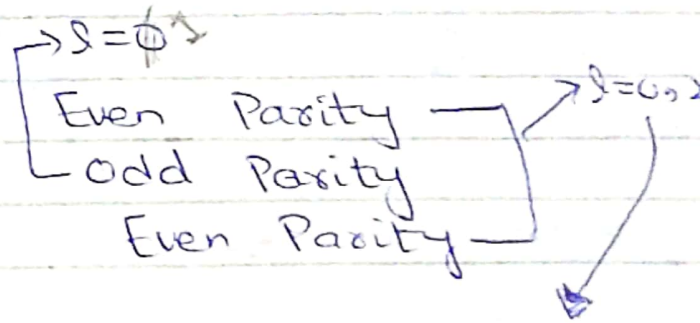 l = 1
Even Parity
l = 0, 2
Odd Parity
Even Parity